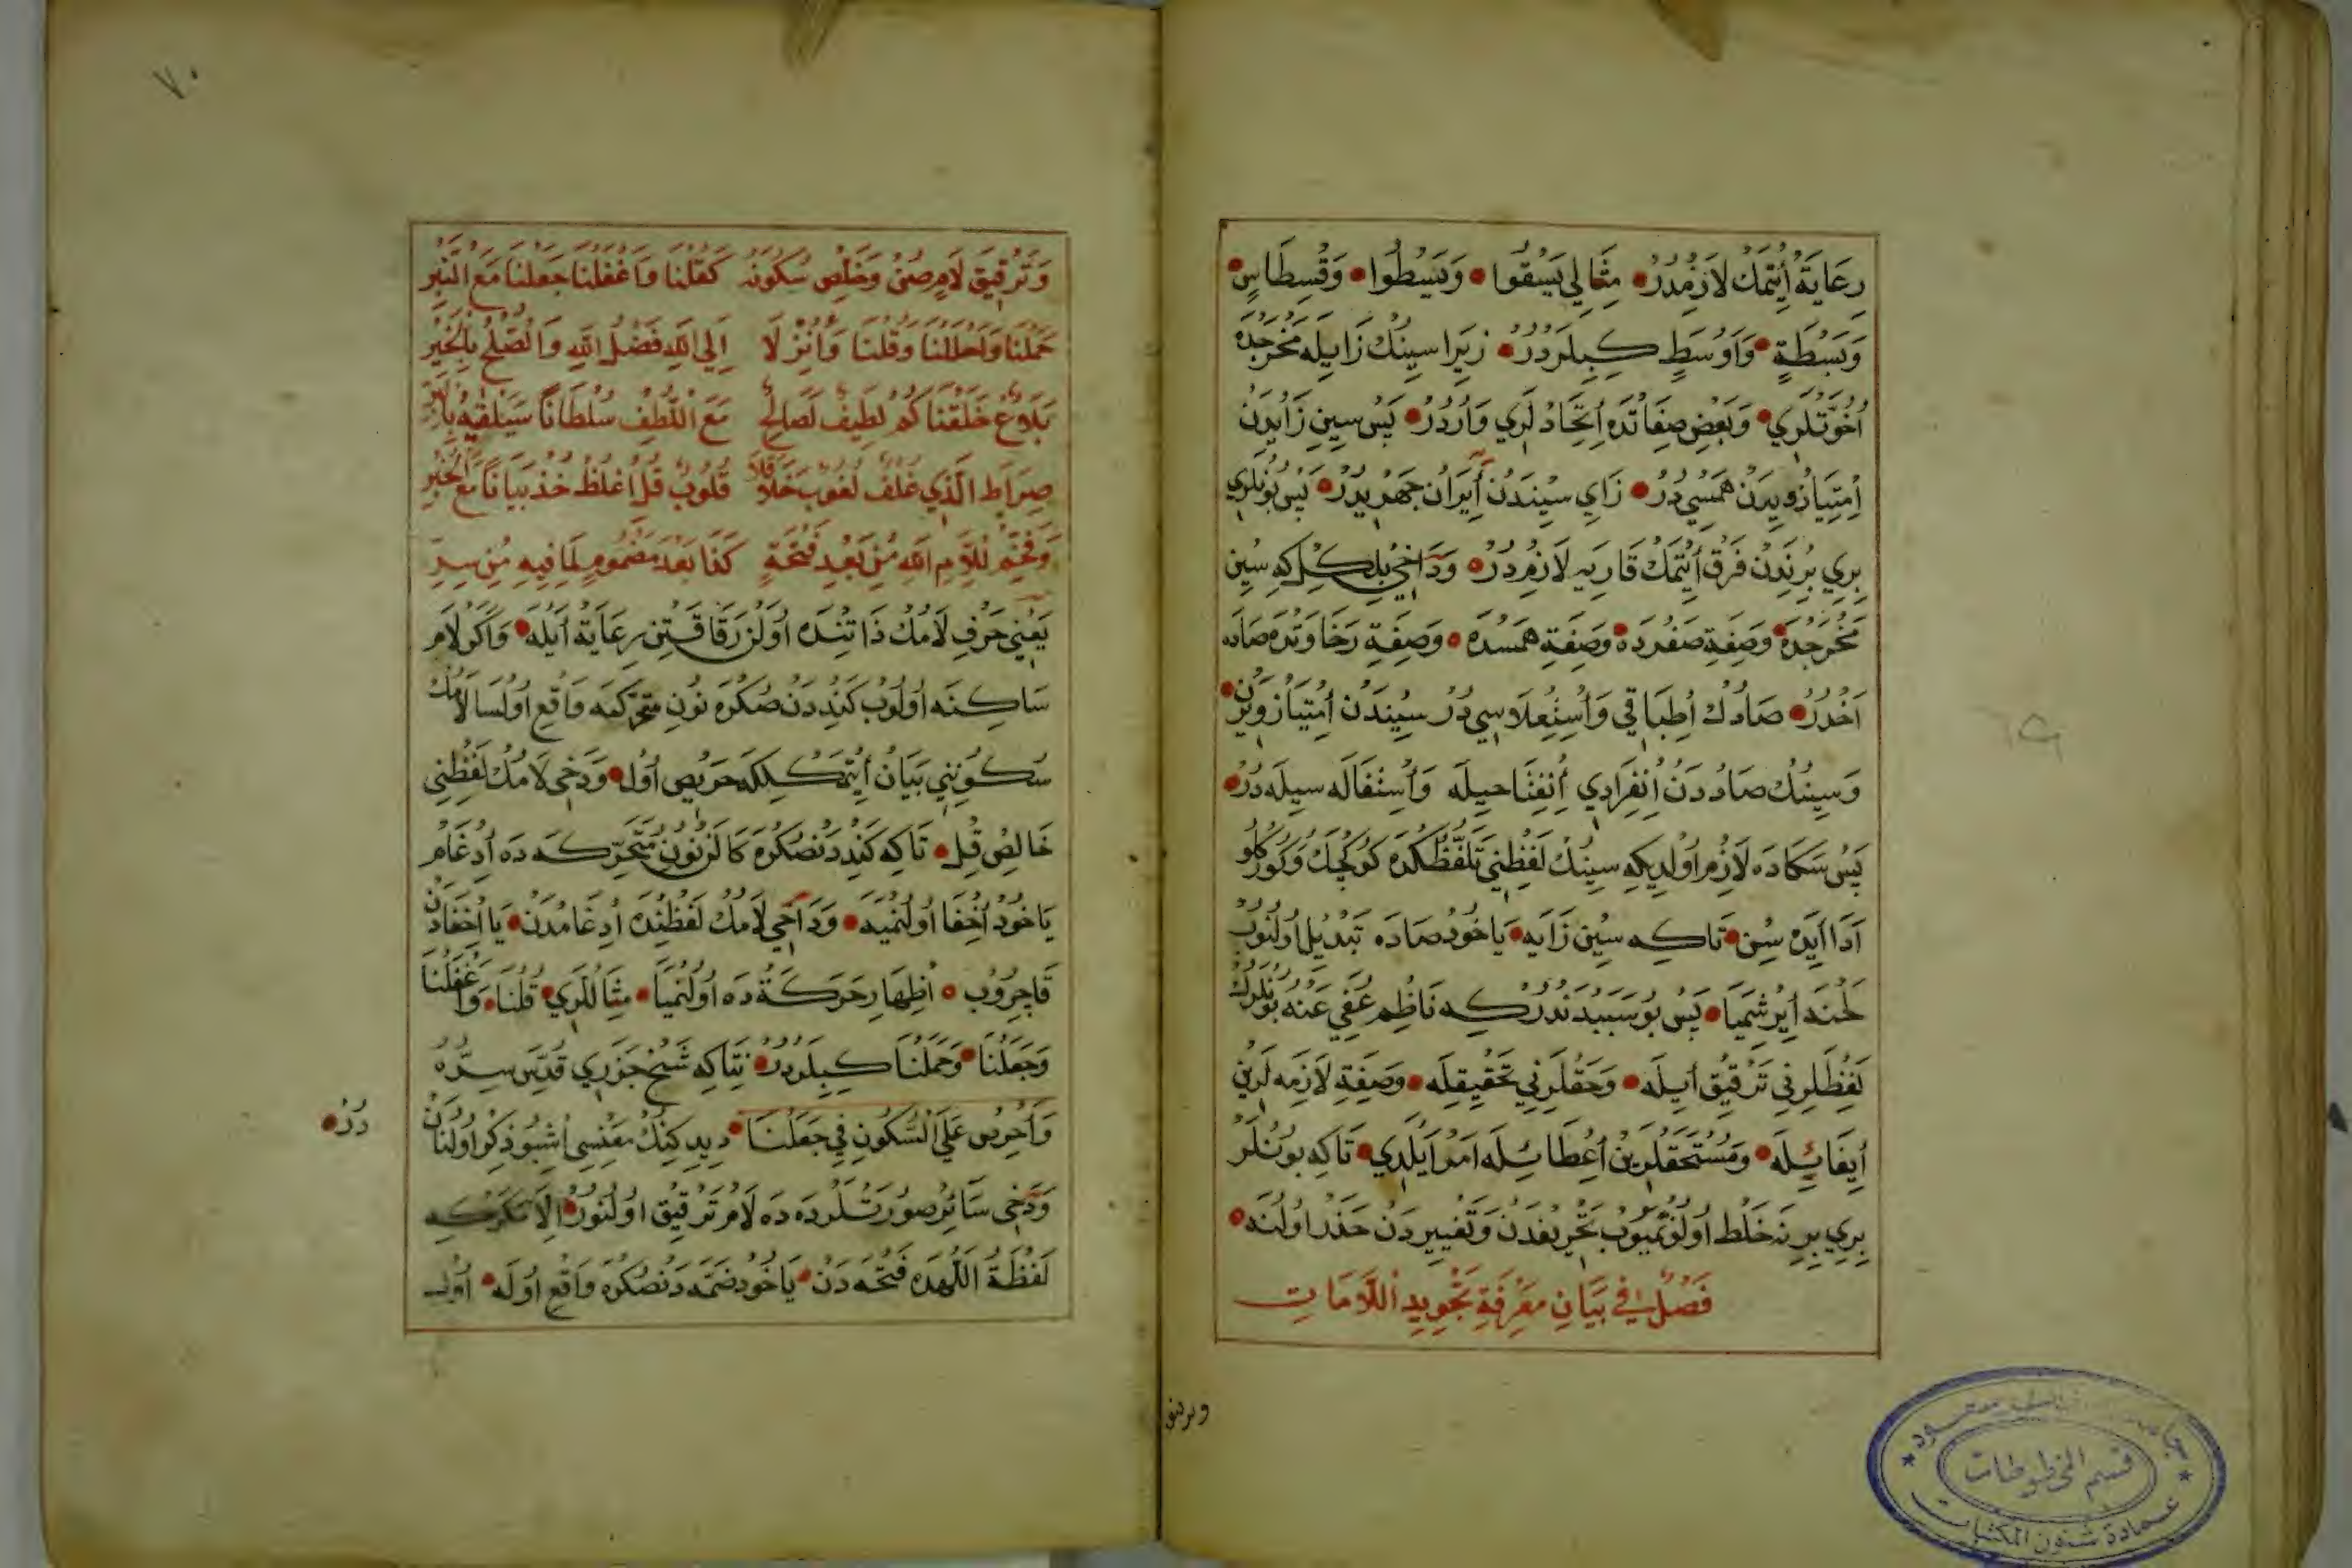 رِعَايَةْ أَيْتَمَكْ لَازِمْدُرْ مِثَالِي يَسْقُوا وَيَبْسُطُوا وَقِسْطَاسٍ
وَبَسْطَةٍ وَاَوْسَطِ كِبِيلَرْدُرْ زِيرَا سِينِكْ زَايِيلَه مَخْرَجْدَه
اُخُوَّتْلَرِي وَبَعْضِ صِفَاتْدَه اِتِّحَادْلَرِي وَارْدُرْ پَسْ سِينِي زَايْدَنْ
اِمْتِيَازْ وِيرَنْ هَمْسِيدُرْ زَايِ سِينْدَنْ آيِرَانْ جَهْرِيدُرْ پَسْ بُونْلَرِي
بِرِي بِرِنْدَنْ فَرْقْ اَيْتْمَكْ قَارِيَه لَازِمْدُرْ وَدَاخِي بِلْكِلْ كِه سِينْ
مَخْرَجْدَه وَصِفَةِ صَفِرْدَه وَصِفَةِ هَمْسْدَه وَصِفَةِ رَخَاوَتْدَه صَادَه
اُخْدُرْ صَادِكْ اِطْبَاقِي وَاِسْتِعْلَاسِيدُرْ سِينْدَنْ اِمْتِيَازْ وِيرَنْ
وَسِينِكْ صَادْدَنْ اِنْفِرَادِي اِنْفِتَاحِيلَه وَاِسْتِفَالَه سِيلَه دُرْ
پَسْ سَكَادَه لَازِمْ اَوْلدِيكِه سِينِكْ لَفْظِنِي تَلَفُّظْكَدَه كُوكْچَكْ وَكُورْكُلُو
اَدَا اَيدَه سِنْ تَاكِه سِينْ زَايَه يَاخُودْ صَادَه تَبْدِيلْ اُولْنُوبْ
لَحْنَه اَيْرِشْمَيَا پَسْ بُو سَبَبْدَنْدُرْ كِه نَاظِمْ عُفِيَ عَنْهُ بُونْلَرِكْ
لَفْظْلَرِنِي تَرْقِيقْ اَيِلَه وَحَقْلَرِنِي تَحْقِيقِلَه وَصِفَةِ لَازِمَه لَرِينْ
اِيفَائِيلَه وَمُسْتَحَقْلَرِينْ اِعْطَائِيلَه اَمْرْ اَيْلَدِي تَاكِه بُونْلَرْ
بِرِي بِرِنَه خَلْطْ اُولُنْمَيُوبْ تَحْرِيفْدَنْ وَتَغْيِيرْدَنْ حَذَرْ اُولُنَه
فَصْلٌ فِي بَيَانِ مَعْرِفَةِ تَجْوِيدِ اللَّامَاتِ
ويرينو
٧٠
وَتَرْقِيقَ لَامٍ صُنْ وَخَلِّصْ سُكُونَهُ كَقُلْنَا وَاَغْفَلْنَا جَعَلْنَا مَعَ النَّبْرِ
حَمَلْنَا وَاَحْلَلْنَا وَقُلْنَا وَاَنْزَلَا اِلَى اللّٰهِ فَضْلُ اللّٰهِ وَالصُّلْحُ بِالْخَيْرِ
بَلَاغٌ خَلَقْنَاكُمْ لَطِيفٌ لَصَالِحٌ مَعَ اللُّطْفِ سُلْطَانًا سَيَلْقَيهُ
صِرَاطَ الَّذِي غُلْفٌ لُغُوبٌ خَلَا قَلَا قُلُوبٌ قُلْ اُغْلُظْ خُذْ بَيَانًا مَعَ الْخُبْرِ
وَفَخِّمْ لِلَامِ اللّٰهِ مِنْ بَعْدِ فَتْحَةٍ كَذَا بَعْدَ مَضْمُومٍ لِمَا فِيهِ مِنْ سِرِّ
يَعْنِي حَرْفِ لَامِكْ ذَاتِنْدَه اُولَنْ رِقَاقَتِنْ رِعَايَةْ اَيلَه وَاَكَرْ لَامْ
سَاكِنَه اُولُوبْ كَنْدِدَنْ صُكْرَه نُونِ مُتَحَرِّكَه وَاقِعْ اُولْسَا لَامِكْ
سُكُونِنِي بَيَانْ اَيْتْمَكْلِكَه حَرِيصْ اُولْ وَدَخِي لَامِكْ لَفْظِنِي
خَالِصْ قِلْ تَاكِه كَنْدِدَنْصُكْرَه كَالَنْ نُونِ مُتَحَرِّكَه دَه اِدْغَامْ
يَاخُودْ اِخْفَا اُولُنْمَيَه وَدَاخِي لَامِكْ لَفْظِنْدَه اِدْغَامْدَنْ يَا اِخْفَادَنْ
قَاچِرُوبْ اِظْهَارِ حَرَكَةْ دَه اُولُنْمَيَا مِثَاللَرِي قُلْنَا وَاَغْفَلْنَا
وَجَعَلْنَا وَحَمَلْنَا كِبِيلَرْدُرْ نِتَاكِه شَيْخْ جَزَرِي قُدِّسَ سِرُّهُ
وَاَحْرِصْ عَلَى السُّكُونِ فِي جَعَلْنَا دِيدِكِنِكْ مَعْنِسِي اُشْبُو ذِكْرْ اُولُنَانْ
دُرْ
وَدَخِي سَائِرْ صُورَتْلَرْدَه دَه لَامْ تَرْقِيقْ اُولُنُورْ اِلَّا مَكَرْكِه
لَفْظَةُ اللّٰهْدَه فَتْحَه دَنْ يَاخُودْ ضَمَّه دَنْصُكْرَه وَاقِعْ اُولَه اُولْ
قسم المخطوطات
عمادة شئون المكتبات